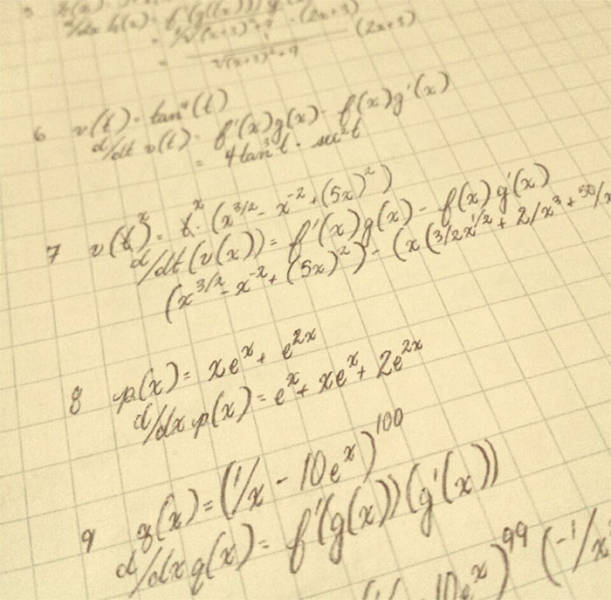 (2x+3)
√(x+3)²+9
6 v(t) = tan⁴(t)
d/dt v(t) = f'(x)g(x) - f(x)g'(x)
= 4tan³t · sec²t
7 v(x) = x·(x^3/2 - x^-2 + (5x)²)
d/dt(v(x)) = f'(x)g(x) - f(x)g'(x)
(x^3/2 - x^-2 + (5x)²) - (x(3/2x^1/2 + 2/x³ + 50/x
8 p(x) = xe^x + e^2x
d/dx p(x) = e^x + xe^x + 2e^2x
9 q(x) = (1/x - 10e^x)^100
d/dx q(x) = f'(g(x))(g'(x))
10e^x)^99 (-1/x